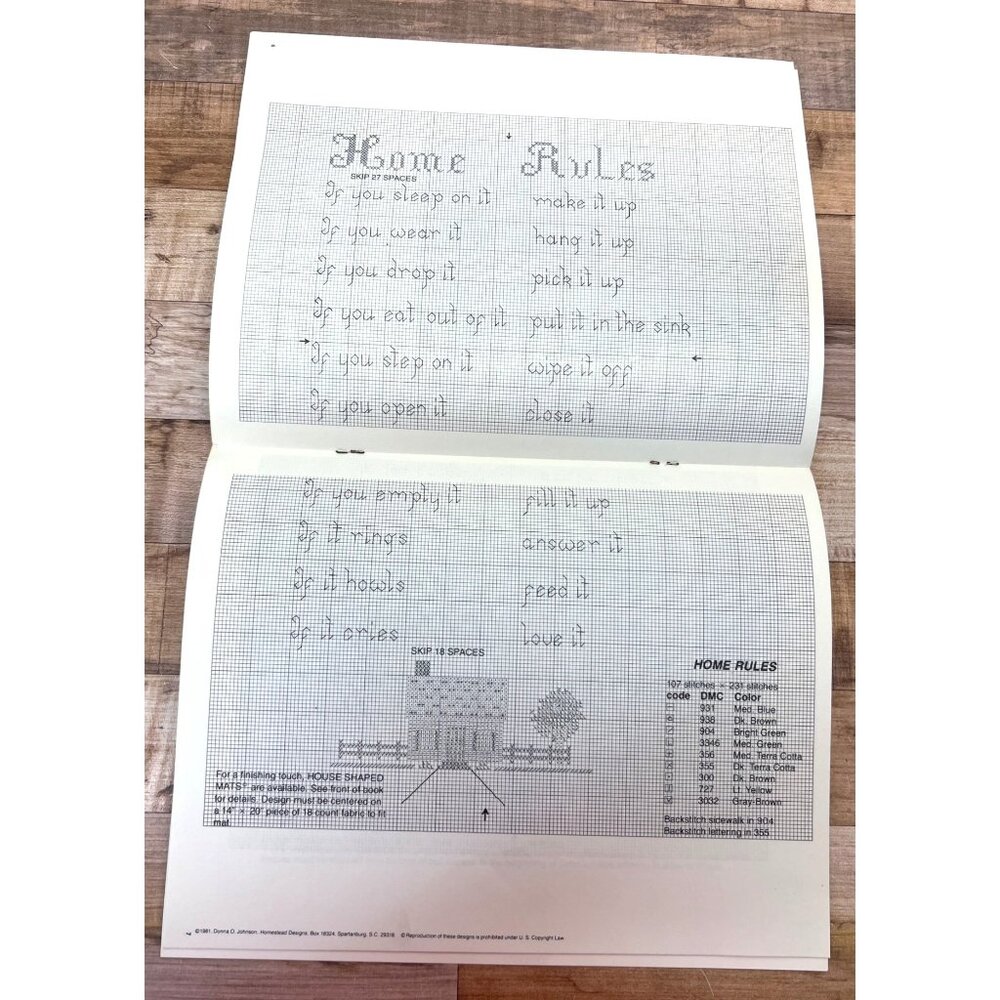 Home Rules
SKIP 27 SPACES
If you sleep on it make it up
If you wear it hang it up
If you drop it pick it up
If you eat out of it put it in the sink
If you step on it wipe it off
If you open it close it
If you empty it fill it up
If it rings answer it
If it howls feed it
If it cries love it
SKIP 18 SPACES
HOME RULES
107 stitches × 231 stitches
code DMC Color
931 Med. Blue
938 Dk. Brown
904 Bright Green
3346 Med. Green
356 Med. Terra Cotta
355 Dk. Terra Cotta
300 Dk. Brown
727 Lt. Yellow
3032 Gray-Brown
Backstitch sidewalk in 904
Backstitch lettering in 355
For a finishing touch, HOUSE SHAPED
MATS® are available. See front of book
for details. Design must be centered on
a 14" × 20" piece of 18 count fabric to fit
mat.
©1981, Donna O. Johnson, Homestead Designs, Box 18324, Spartanburg, S.C. 29318 © Reproduction of these designs is prohibited under U. S. Copyright Law